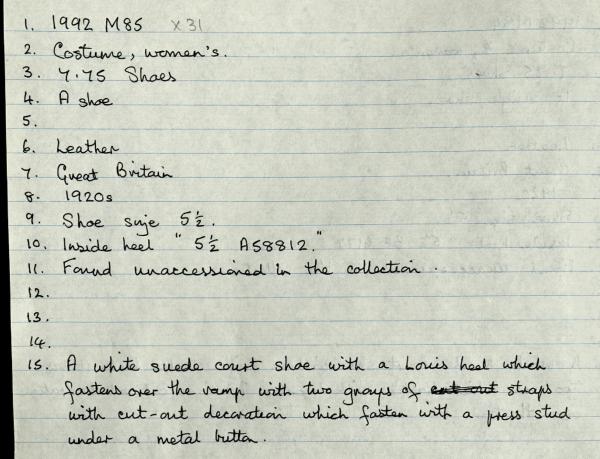 1. 1992 M85 x31
2. Costume, women's.
3. 7.75 Shoes
4. A shoe
5.
6. Leather
7. Great Britain
8. 1920s
9. Shoe size 5½.
10. Inside heel "5½ A58812."
11. Found unaccessioned in the collection.
12.
13.
14.
15. A white suede court shoe with a Louis heel which
fastens over the vamp with two groups of cut out straps
with cut-out decoration which fasten with a press stud
under a metal button.